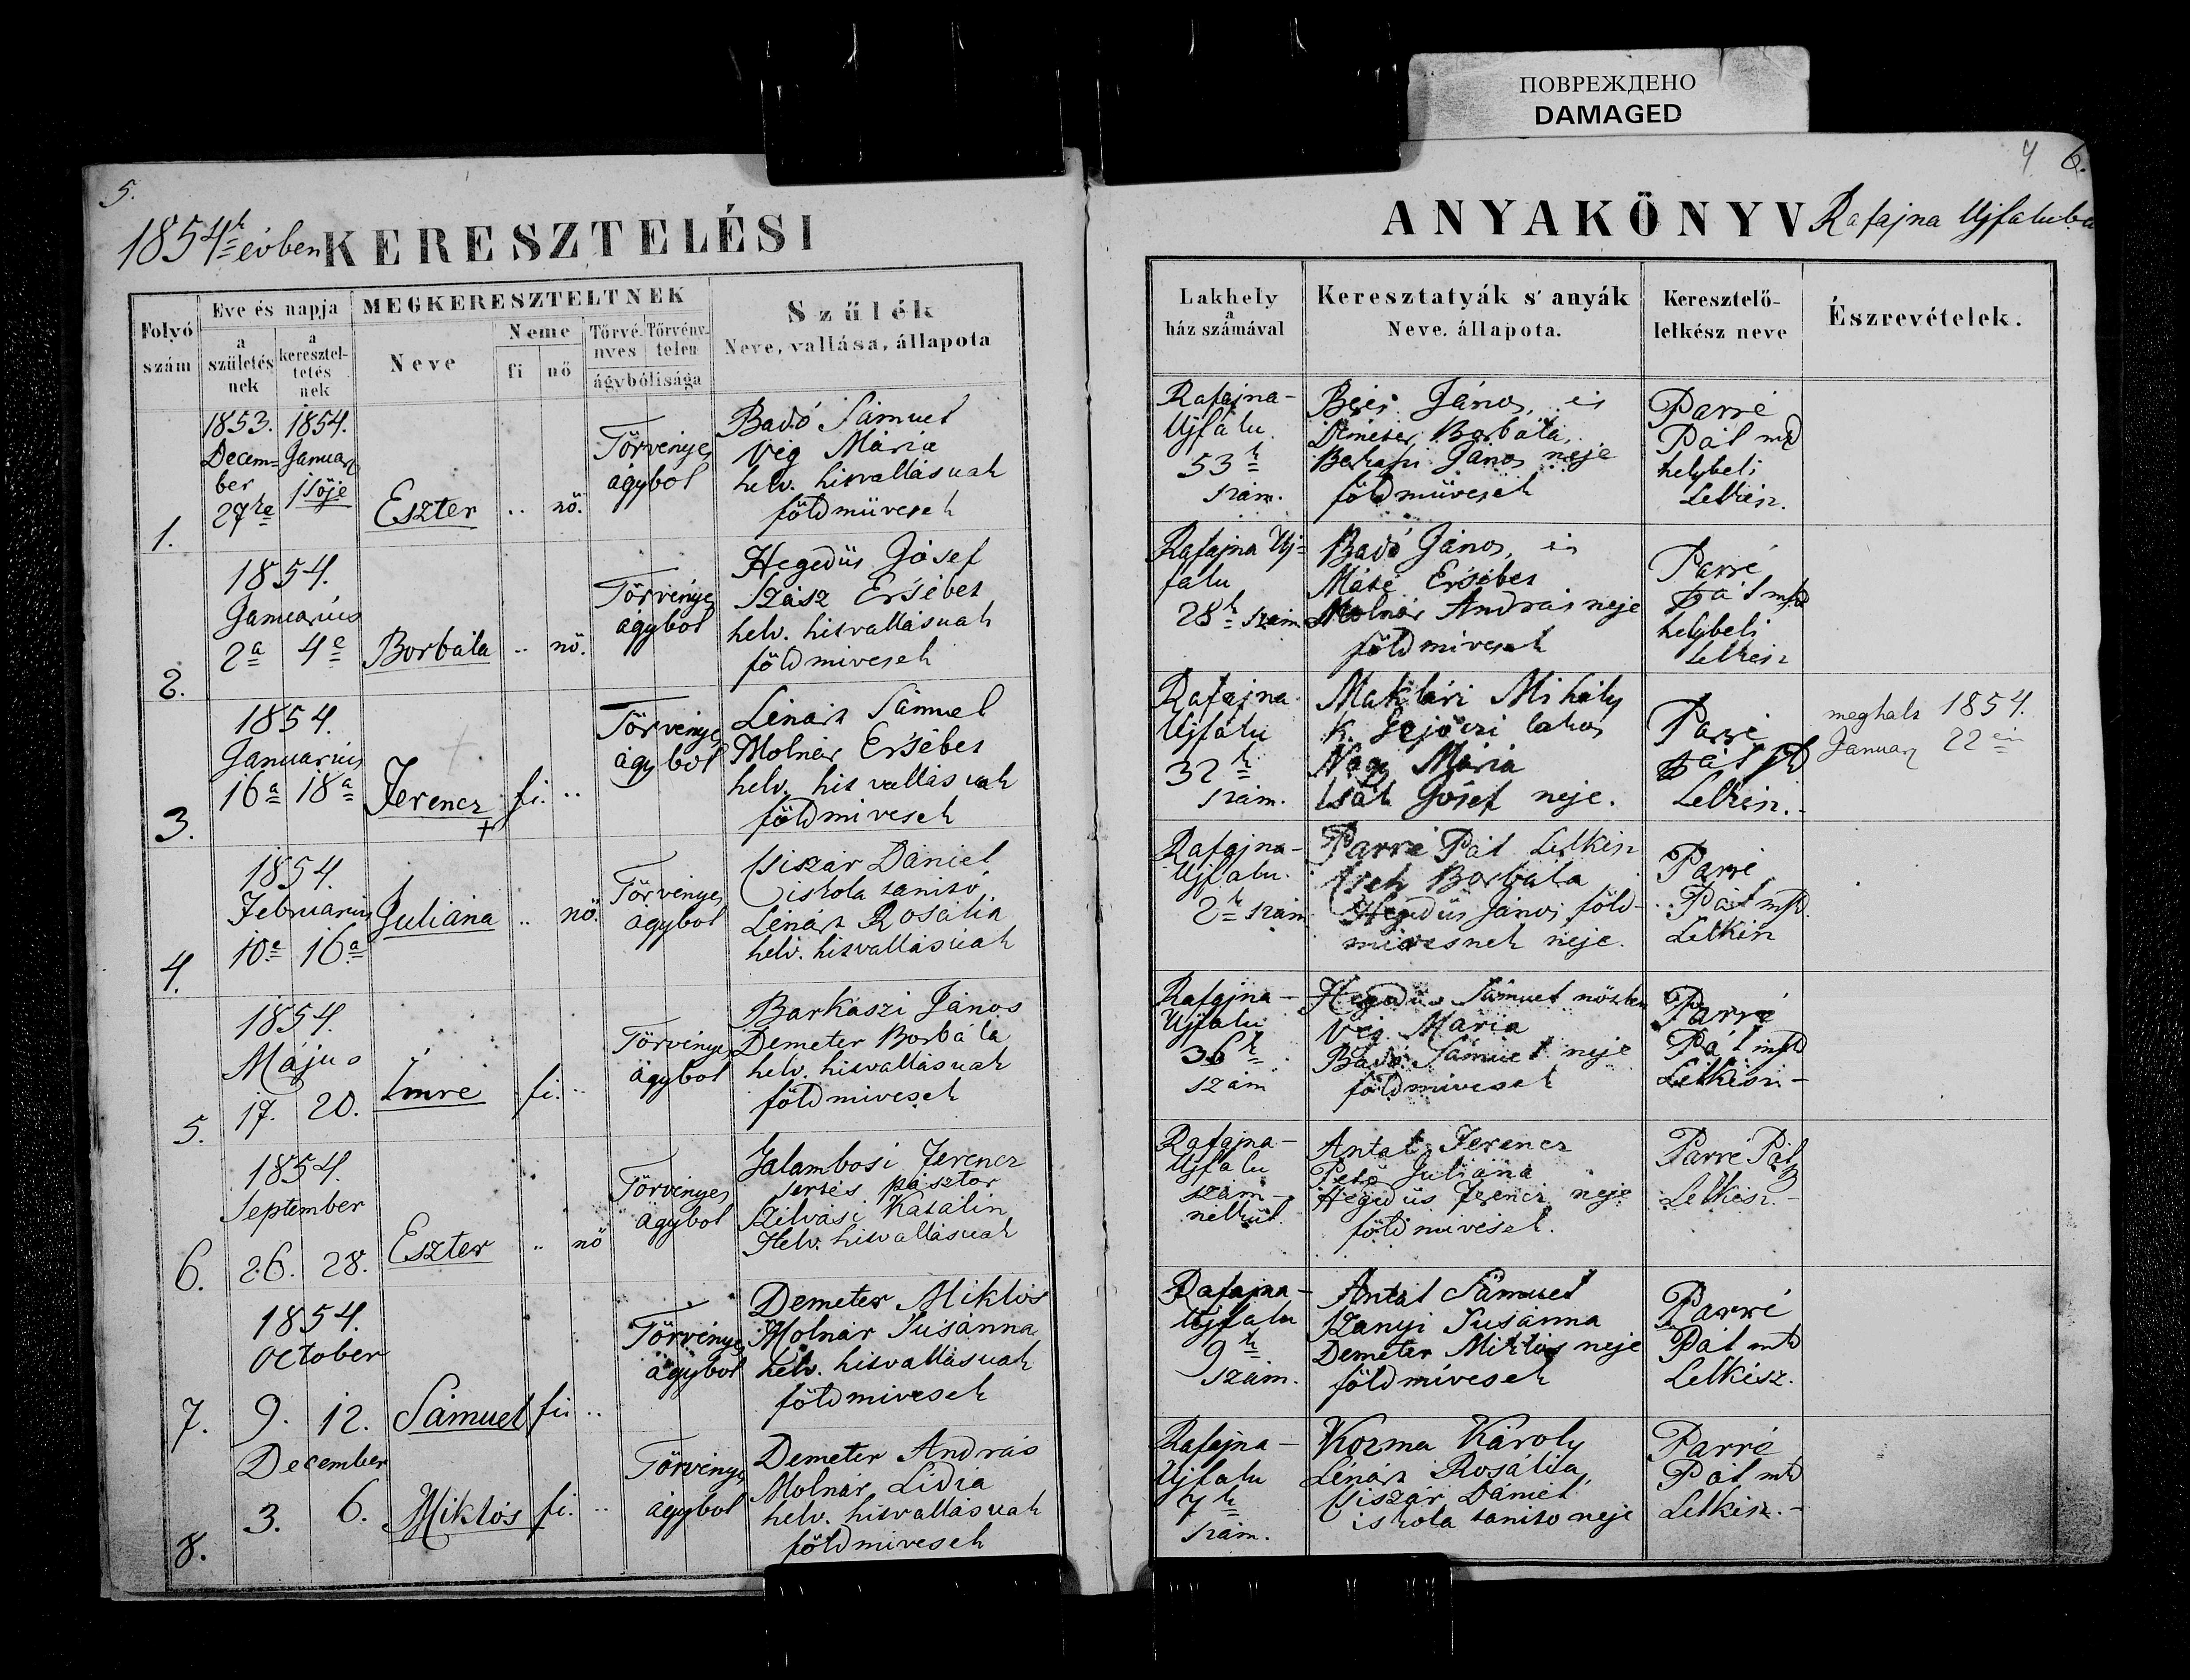 ПОВРЕЖДЕНО
DAMAGED
5.
1854k évben KERESZTELÉSI
Folyó szám
Eve és napja
a születésnek
a kereszteltetésnek
MEGKERESZTELTNEK
Neve
Neme
fi
nő
Törvényes
Törvénytelen
ágybólisága
Szülék
Neve, vallása, állapota
1.
1853. December 27ke
1854. Januar 1sője
Eszter
..
nő.
Törvényes
ágyból
Badó Sámuel
Vig Mária
helv. hitvallásuak
földmüvesek
2.
1854.
Januarius
2a
4e
Borbála
..
nő.
Törvényes
ágyból
Hegedüs Jósef
Szász Ersébet
helv. hitvallásuak
földmivesek
3.
1854.
Januarius
16a
18a
Ferencz
+
fi.
..
Törvényes
ágyból
Lénárt Sámuel
Molnár Ersébet
helv. hitvallásuak
földmivesek
4.
1854.
Februarius
10a
16a
Juliána
..
nő.
Törvényes
ágyból
Csiszár Dániel
iskola tanító,
Lénárt Rosália
helv. hitvallásuak
5.
1854.
Május
17.
20.
Imre
fi.
..
Törvényes
ágyból
Barkaszi János
Demeter Borbála
helv. hitvallásuak
földmivesek
6.
1854.
September
26.
28.
Eszter
..
nő
Törvényes
ágyból
Jalambosi Ferencz
sertés pásztor
Szilvási Katalin
Helv. hitvallásuak
7.
1854.
October
9.
12.
Sámuel
fiu
..
Törvényes
ágyból
Demeter Miklós
Molnár Susánna
helv. hitvallásuak
földmivesek
8.
December
3.
6.
Miklós
fi.
..
Törvényes
ágyból
Demeter András
Molnár Lidia
helv. hitvallásuak
földmivesek
6.
ANYAKÖNYV Rafajna Ujfaluba
Lakhely
a
ház számával
Keresztatyák s' anyák
Neve. állapota.
Keresztelő-
lelkész neve
Észrevételek.
Rafajna-
Ujfalu
53k
szám.
János, és
Demeter Borbála,
János neje
földmüvesek
Parré
Pál mk
helybeli
Lelkész.
Rafajna Uj=
falu
28k szám.
Badó János, és
Máté Ersébet
Molnár András neje
földmivesek
Parré
Pál mk
helybeli
Lelkész
Rafajna
Ujfalu
32k
szám.
Maklári Mihály
k. lakos
Nagy Mária
Csák Jósef neje.
Parré
Pál
Lelkész.-
meghalt 1854.
Januar 22én
Rafajna-
Ujfalu.
2k szám
Parré Pál Lelkész
Cseh Borbála
Hegedüs János föld-
mivesnek neje.
Parré
Pál mk.
Lelkész
Rafajna-
Ujfalu
36k
szám
Hegedüs Sámuel nőstlen
Vig Mária
Badó Sámuel neje
földmivesek
Parré
Pál mk
Lelkész-
Rafajna-
Ujfalu
szám-
nélkül.
Antal Ferencz
Pető Juliána
Hegedüs Ferencz neje
földmivesek.
Parré Pál
Lelkész.-
Rafajna-
Ujfalu
9k
szám.
Antal Sámuel
Szanyi Susánna
Demeter Miklós neje
földmívesek
Parré
Pál mk
Lelkész.
Rafajna-
Ujfalu
7k
szám.
Kozma Károly
Lénárt Rosália,
Csiszár Dániel,
iskola tanitó neje
Parré
Pál mk
Lelkész.-